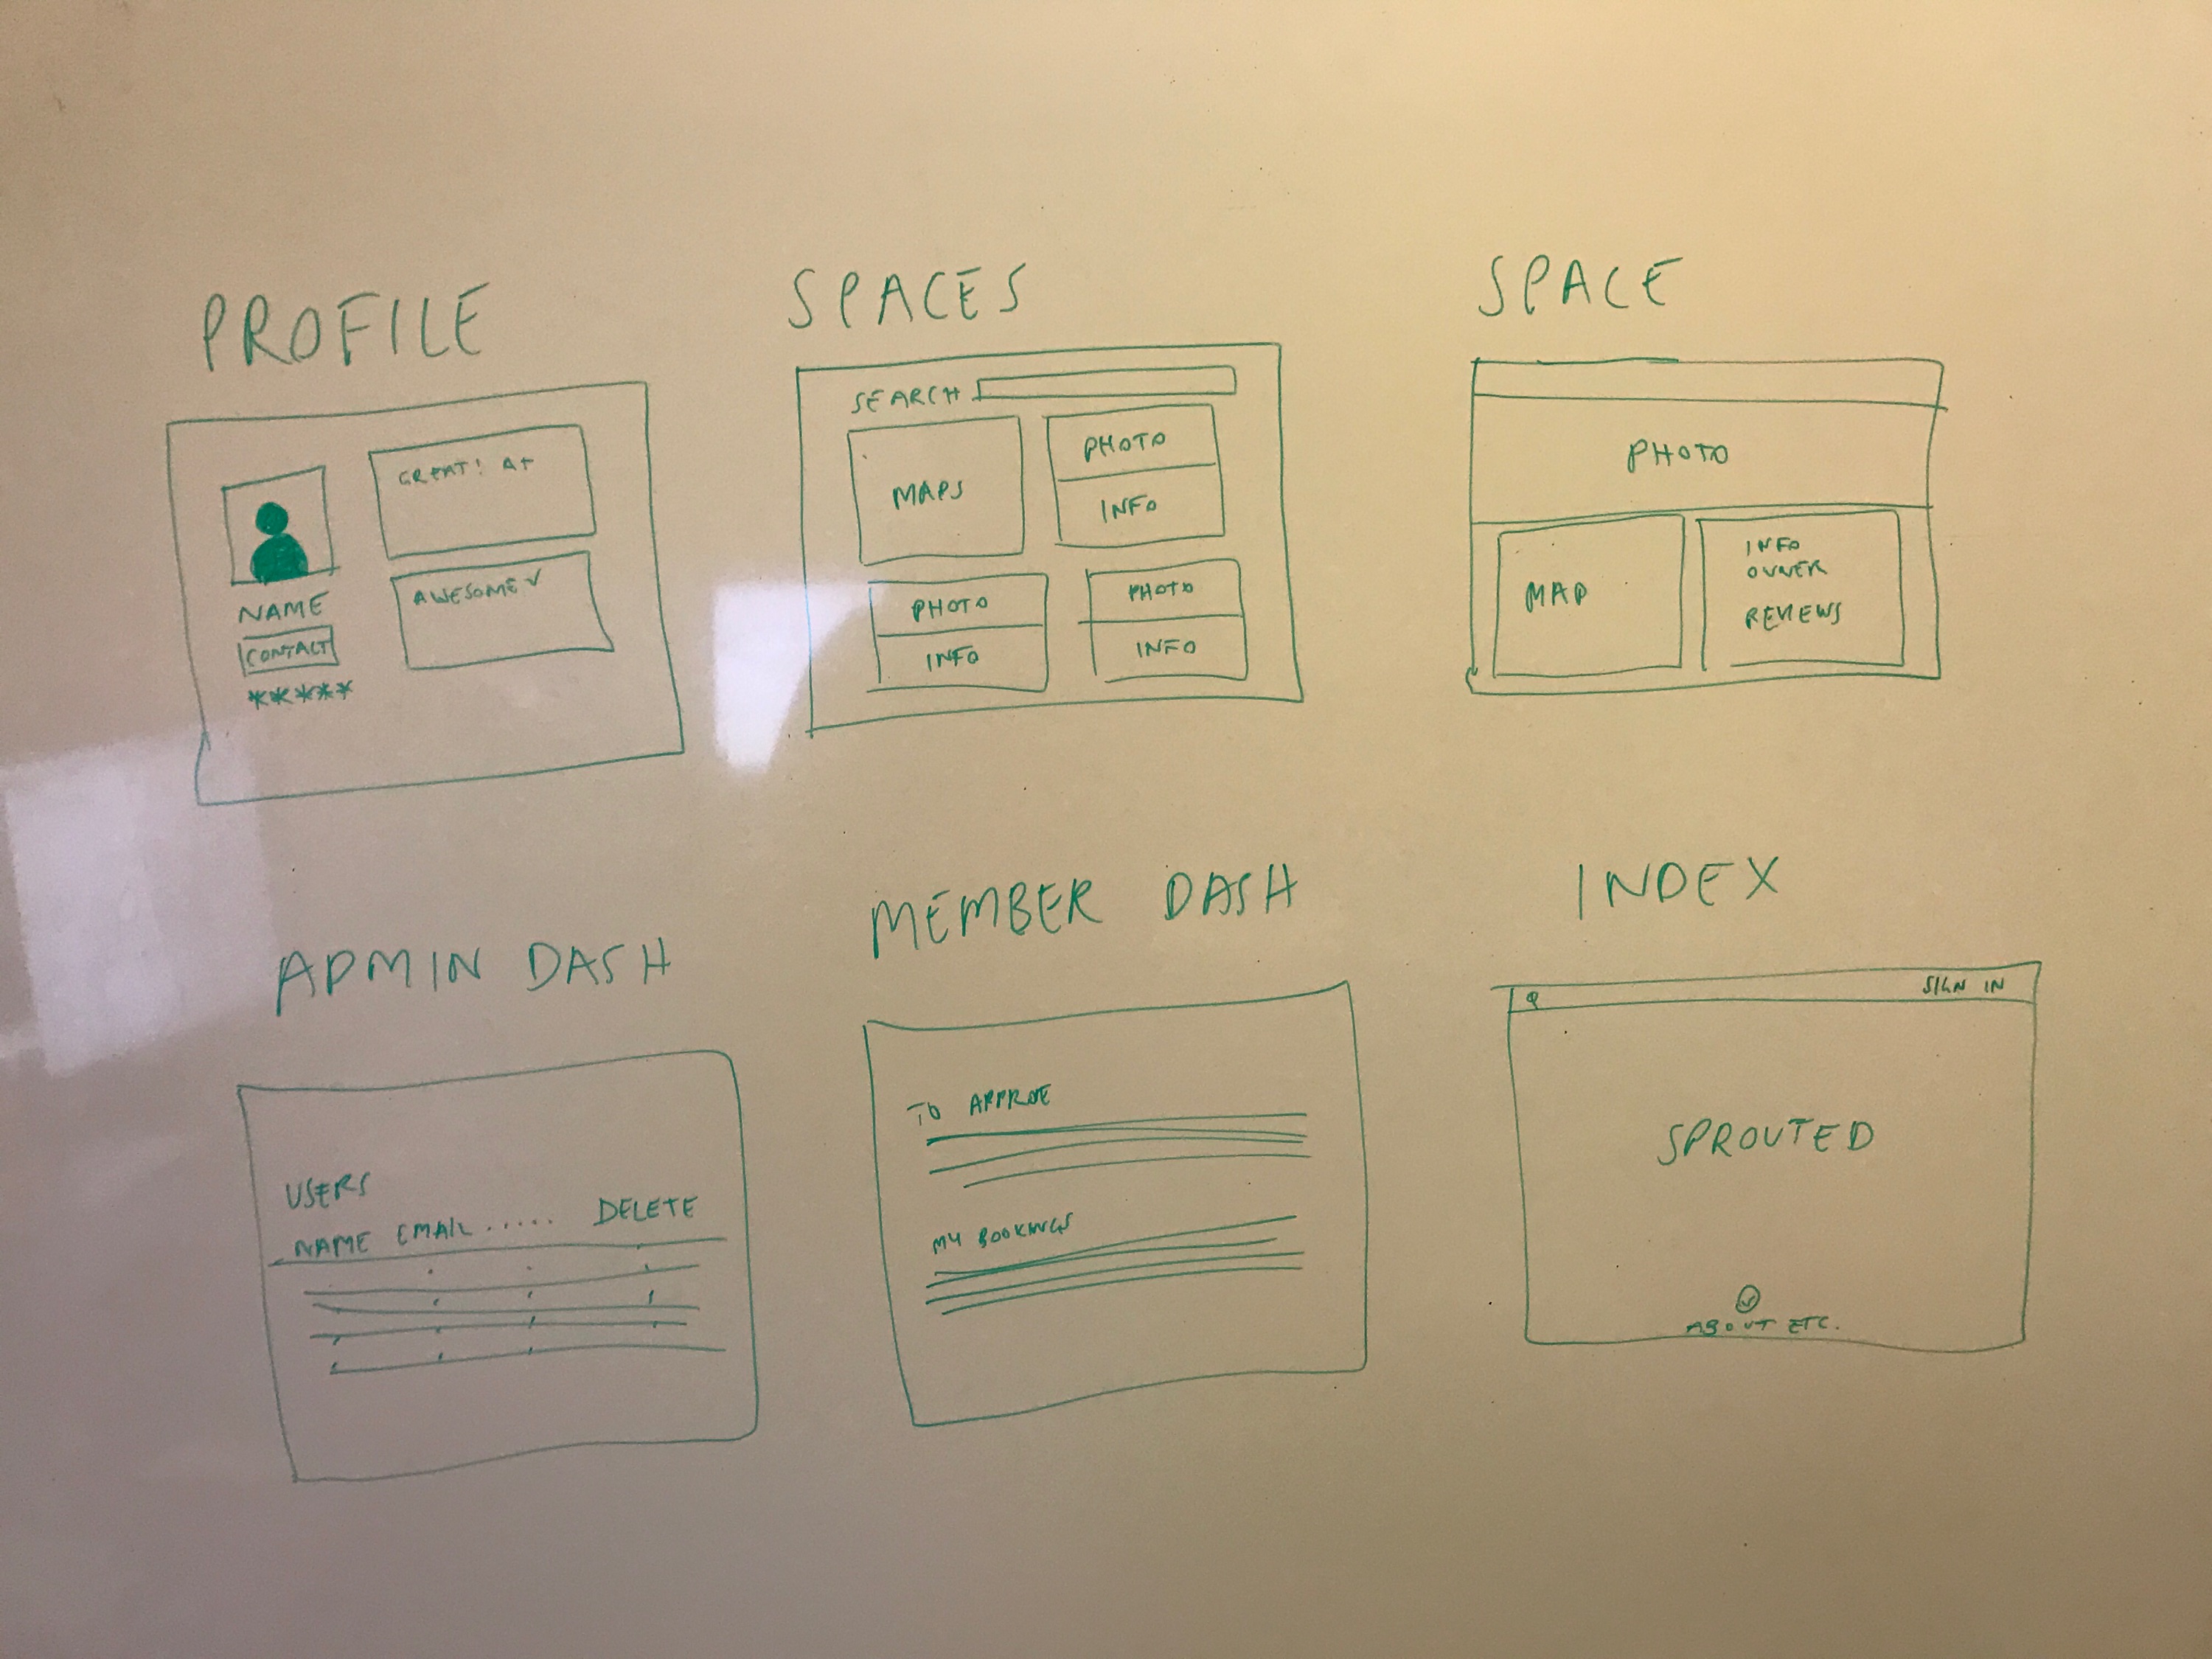 PROFILE
GREAT! A+
AWESOME ✓
NAME
CONTACT
*****
SPACES
SEARCH
MAPS
PHOTO
INFO
PHOTO
INFO
PHOTO
INFO
SPACE
PHOTO
MAP
INFO
OWNER
REVIEWS
ADMIN DASH
USERS
NAME EMAIL ..... DELETE
MEMBER DASH
TO APPROE
MY BOOKINGS
INDEX
SIGN IN
SPROUTED
ABOUT ETC.